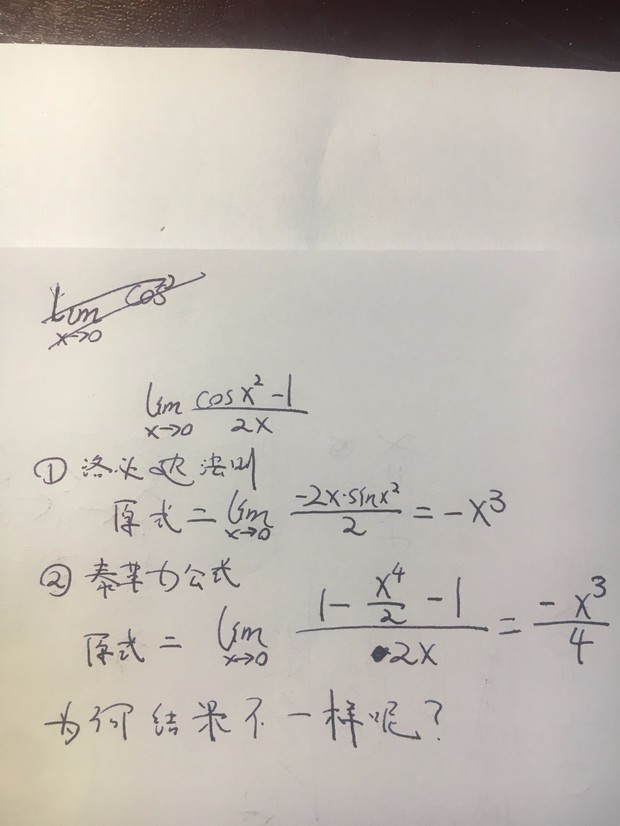 lim x→0 cos²
lim x→0 (cosx²-1)/(2x)
① 洛必达法则
原式 = lim x→0 (-2x·sinx²)/2 = -x³
② 泰勒公式
原式 = lim x→0 (1 - x⁴/2 - 1)/(2x) = (-x³)/4
为何结果不一样呢?